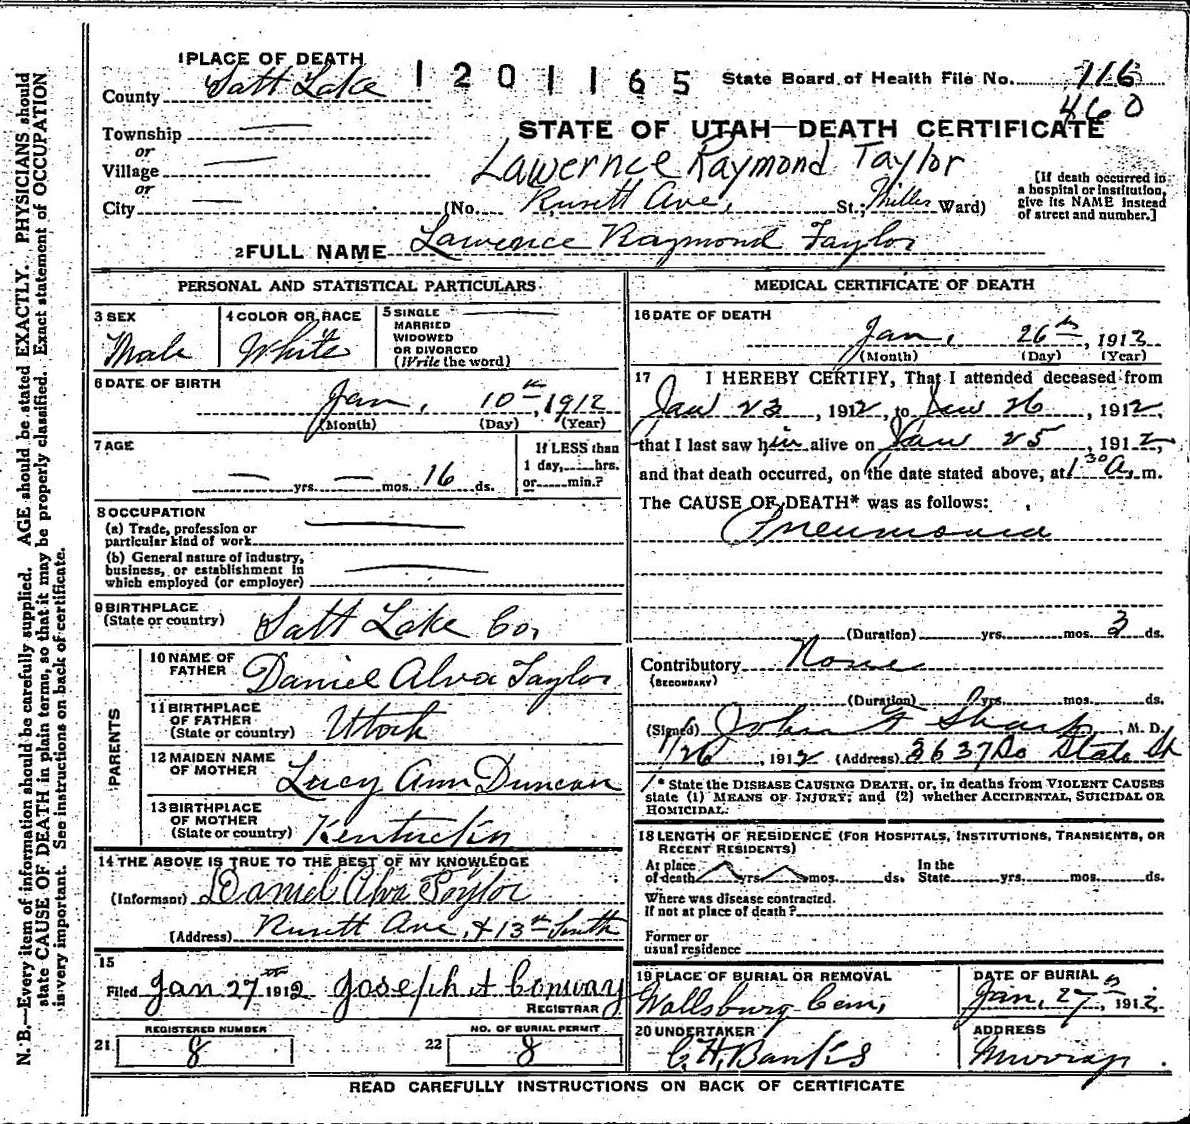 1 PLACE OF DEATH
County Salt Lake
1201165
State Board of Health File No. 116
460
Township
or
Village
or
City
STATE OF UTAH—DEATH CERTIFICATE
Lawernce Raymond Taylor
(No. Rusett Ave, St.; Miller Ward)
[If death occurred in
a hospital or institution,
give its NAME instead
of street and number.]
2 FULL NAME Lawrence Raymond Taylor
PERSONAL AND STATISTICAL PARTICULARS
3 SEX
Male
4 COLOR OR RACE
White
5 SINGLE
MARRIED
WIDOWED
OR DIVORCED
(Write the word)
6 DATE OF BIRTH
Jan, 10th, 1912
(Month) (Day) (Year)
7 AGE
yrs. mos. 16 ds.
If LESS than
1 day, hrs.
or min.?
8 OCCUPATION
(a) Trade, profession or
particular kind of work
(b) General nature of industry,
business, or establishment in
which employed (or employer)
9 BIRTHPLACE
(State or country) Salt Lake Co,
PARENTS
10 NAME OF
FATHER Daniel Alva Taylor
11 BIRTHPLACE
OF FATHER
(State or country) Utah
12 MAIDEN NAME
OF MOTHER Lucy Ann Duncan
13 BIRTHPLACE
OF MOTHER
(State or country) Kentucky
14 THE ABOVE IS TRUE TO THE BEST OF MY KNOWLEDGE
(Informant) Daniel Alva Taylor
(Address) Rusett Ave, & 13th South
15
Filed Jan 27th 1912 Joseph A Conway
REGISTRAR
REGISTERED NUMBER
21 8
NO. OF BURIAL PERMIT
22 8
MEDICAL CERTIFICATE OF DEATH
16 DATE OF DEATH
Jan, 26th, 1912
(Month) (Day) (Year)
17 I HEREBY CERTIFY, That I attended deceased from
Jan 23, 1912, to Jan 26, 1912,
that I last saw him alive on Jan 25, 1912,
and that death occurred, on the date stated above, at 1 30 A. m.
The CAUSE OF DEATH* was as follows:
Pneumonia
(Duration) yrs. mos. 3 ds.
Contributory None
(SECONDARY)
(Duration) yrs. mos. ds.
(Signed) John F Sharp, M. D.
1/26, 1912 (Address) 3637 So State St
* State the DISEASE CAUSING DEATH, or, in deaths from VIOLENT CAUSES
state (1) MEANS OF INJURY; and (2) whether ACCIDENTAL, SUICIDAL OR
HOMICIDAL.
18 LENGTH OF RESIDENCE (FOR HOSPITALS, INSTITUTIONS, TRANSIENTS, OR
RECENT RESIDENTS)
At place
of death yrs. mos. ds.
In the
State yrs. mos. ds.
Where was disease contracted.
If not at place of death?
Former or
usual residence
19 PLACE OF BURIAL OR REMOVAL
Wallsburg Cem,
DATE OF BURIAL
Jan, 27th, 1912
20 UNDERTAKER
C. H. Banks
ADDRESS
Murray
READ CAREFULLY INSTRUCTIONS ON BACK OF CERTIFICATE
N. B.—Every item of information should be carefully supplied. AGE should be stated EXACTLY. PHYSICIANS should
state CAUSE OF DEATH in plain terms, so that it may be properly classified. Exact statement of OCCUPATION
is very important. See instructions on back of certificate.